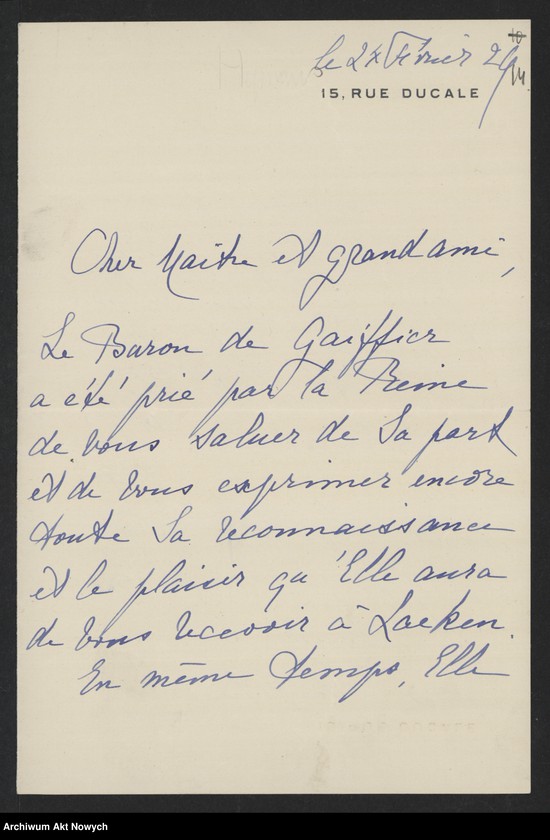 le 24 Février 24
14
15, RUE DUCALE
Cher Maître et grand ami,
Le Baron de Gaiffier
a été prié par la Reine
de vous saluer de Sa part
et de vous exprimer encore
toute Sa reconnaissance
et le plaisir qu'Elle aura
de vous recevoir à Laeken.
En même temps, Elle
Archiwum Akt Nowych